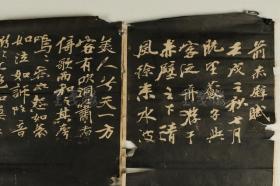 前赤壁賦
壬戌之秋七月
既望蘇子與
客泛舟遊于
赤壁之下清
風徐來水波
美人兮天一方
客有吹洞簫者
倚歌而和之其聲
嗚嗚然如怨如慕
如泣如訴餘音